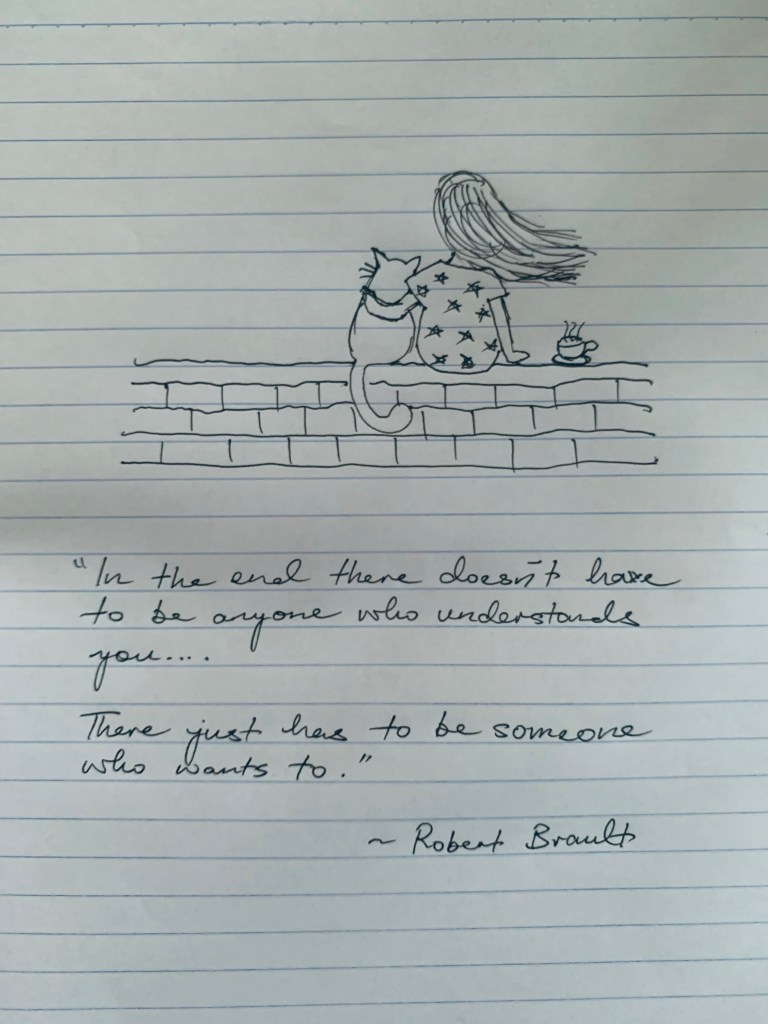 "In the end there doesn't have
to be anyone who understands
you....
There just has to be someone
who wants to."
~ Robert Brault